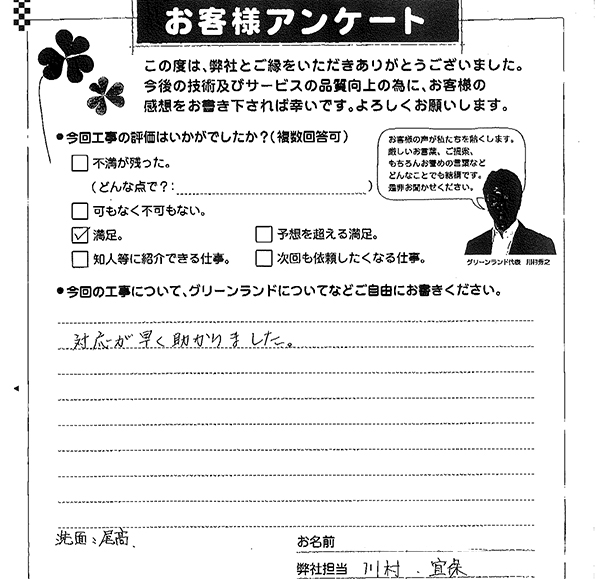 お客様アンケート
この度は、弊社とご縁をいただきありがとうございました。
今後の技術及びサービスの品質向上の為に、お客様の
感想をお書き下されば幸いです。よろしくお願いします。
●今回工事の評価はいかがでしたか？（複数回答可）
お客様の声が私たちを動くします。
厳しいお言葉、ご提案、
もちろんお誉めの言葉など
どんなことでも結構です。
是非お聞かせください。
不満が残った。
（どんな点で？：　　　）
可もなく不可もない。
満足。
予想を超える満足。
知人等に紹介できる仕事。
次回も依頼したくなる仕事。
グリーンランド代表 川村
●今回の工事について、グリーンランドについてなどご自由にお書きください。
対応が早く助かりました。
洗面：尾高
お名前
弊社担当 川村 . 宜保